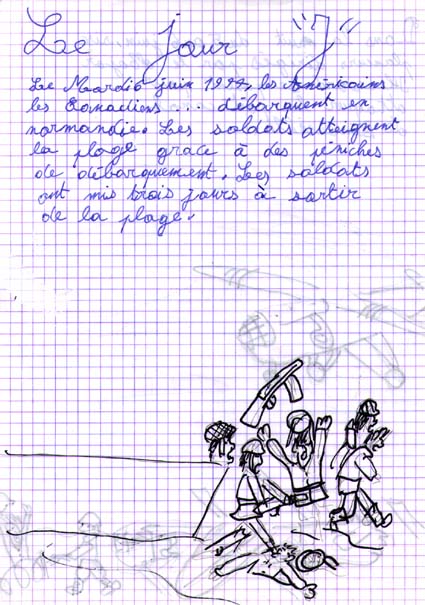 Le jour "J"
Le Mardi 6 juin 1944, les Américains
les Canadiens ... débarquent en
normandie. Les soldats atteignent
la plage grace à des péniches
de débarquement. Les soldats
ont mis trois jours à sortir
de la plage.